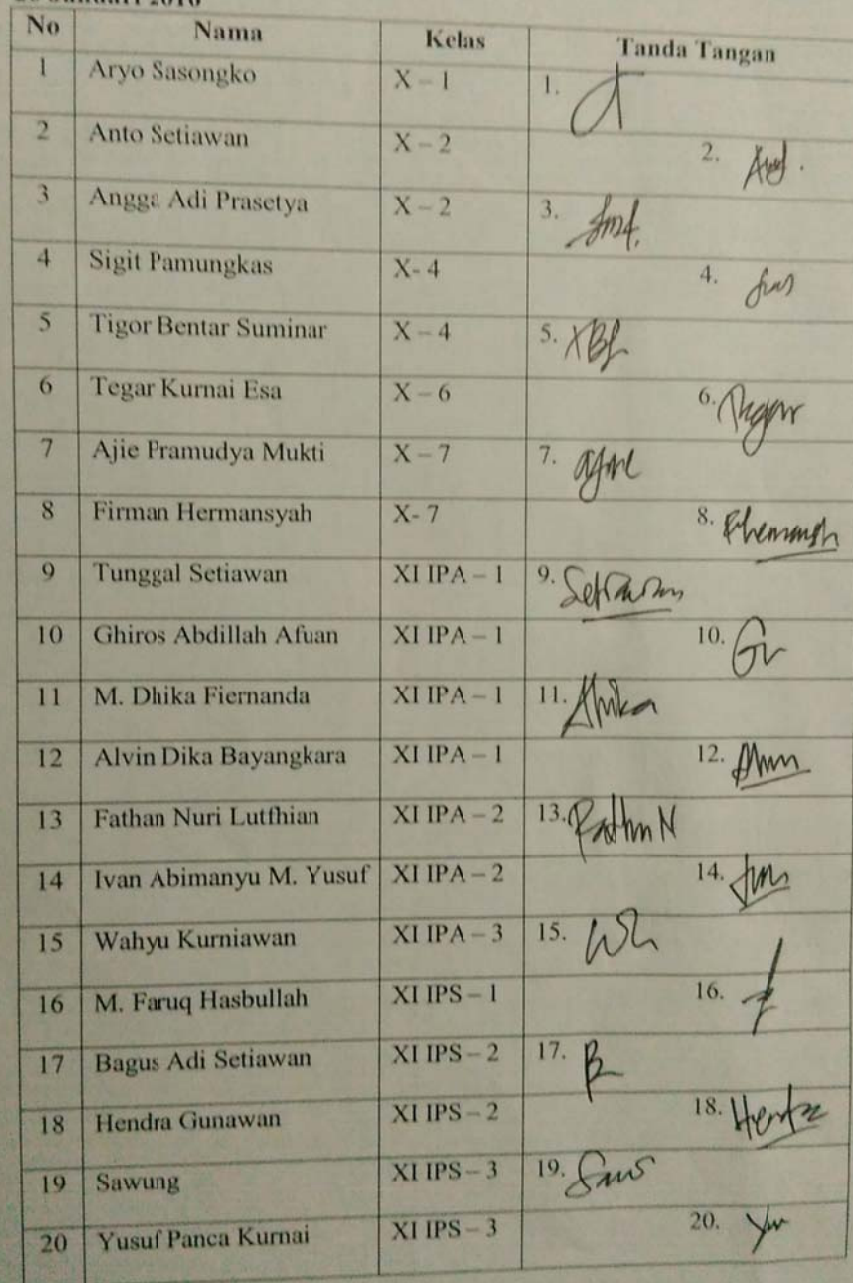 No Nama Kelas Tanda Tangan
1 Aryo Sasongko X – 1 1.
2 Anto Setiawan X – 2 2.
3 Angga Adi Prasetya X – 2 3.
4 Sigit Pamungkas X- 4 4.
5 Tigor Bentar Suminar X – 4 5.
6 Tegar Kurnai Esa X – 6 6. Tegar
7 Ajie Pramudya Mukti X – 7 7.
8 Firman Hermansyah X- 7 8.
9 Tunggal Setiawan XI IPA – 1 9. Setiawan
10 Ghiros Abdillah Afuan XI IPA – 1 10.
11 M. Dhika Fiernanda XI IPA – 1 11. Dhika
12 Alvin Dika Bayangkara XI IPA – 1 12.
13 Fathan Nuri Lutfhian XI IPA – 2 13. Fathan N
14 Ivan Abimanyu M. Yusuf XI IPA – 2 14.
15 Wahyu Kurniawan XI IPA – 3 15.
16 M. Faruq Hasbullah XI IPS – 1 16.
17 Bagus Adi Setiawan XI IPS – 2 17.
18 Hendra Gunawan XI IPS – 2 18.
19 Sawung XI IPS – 3 19.
20 Yusuf Panca Kurnai XI IPS – 3 20.